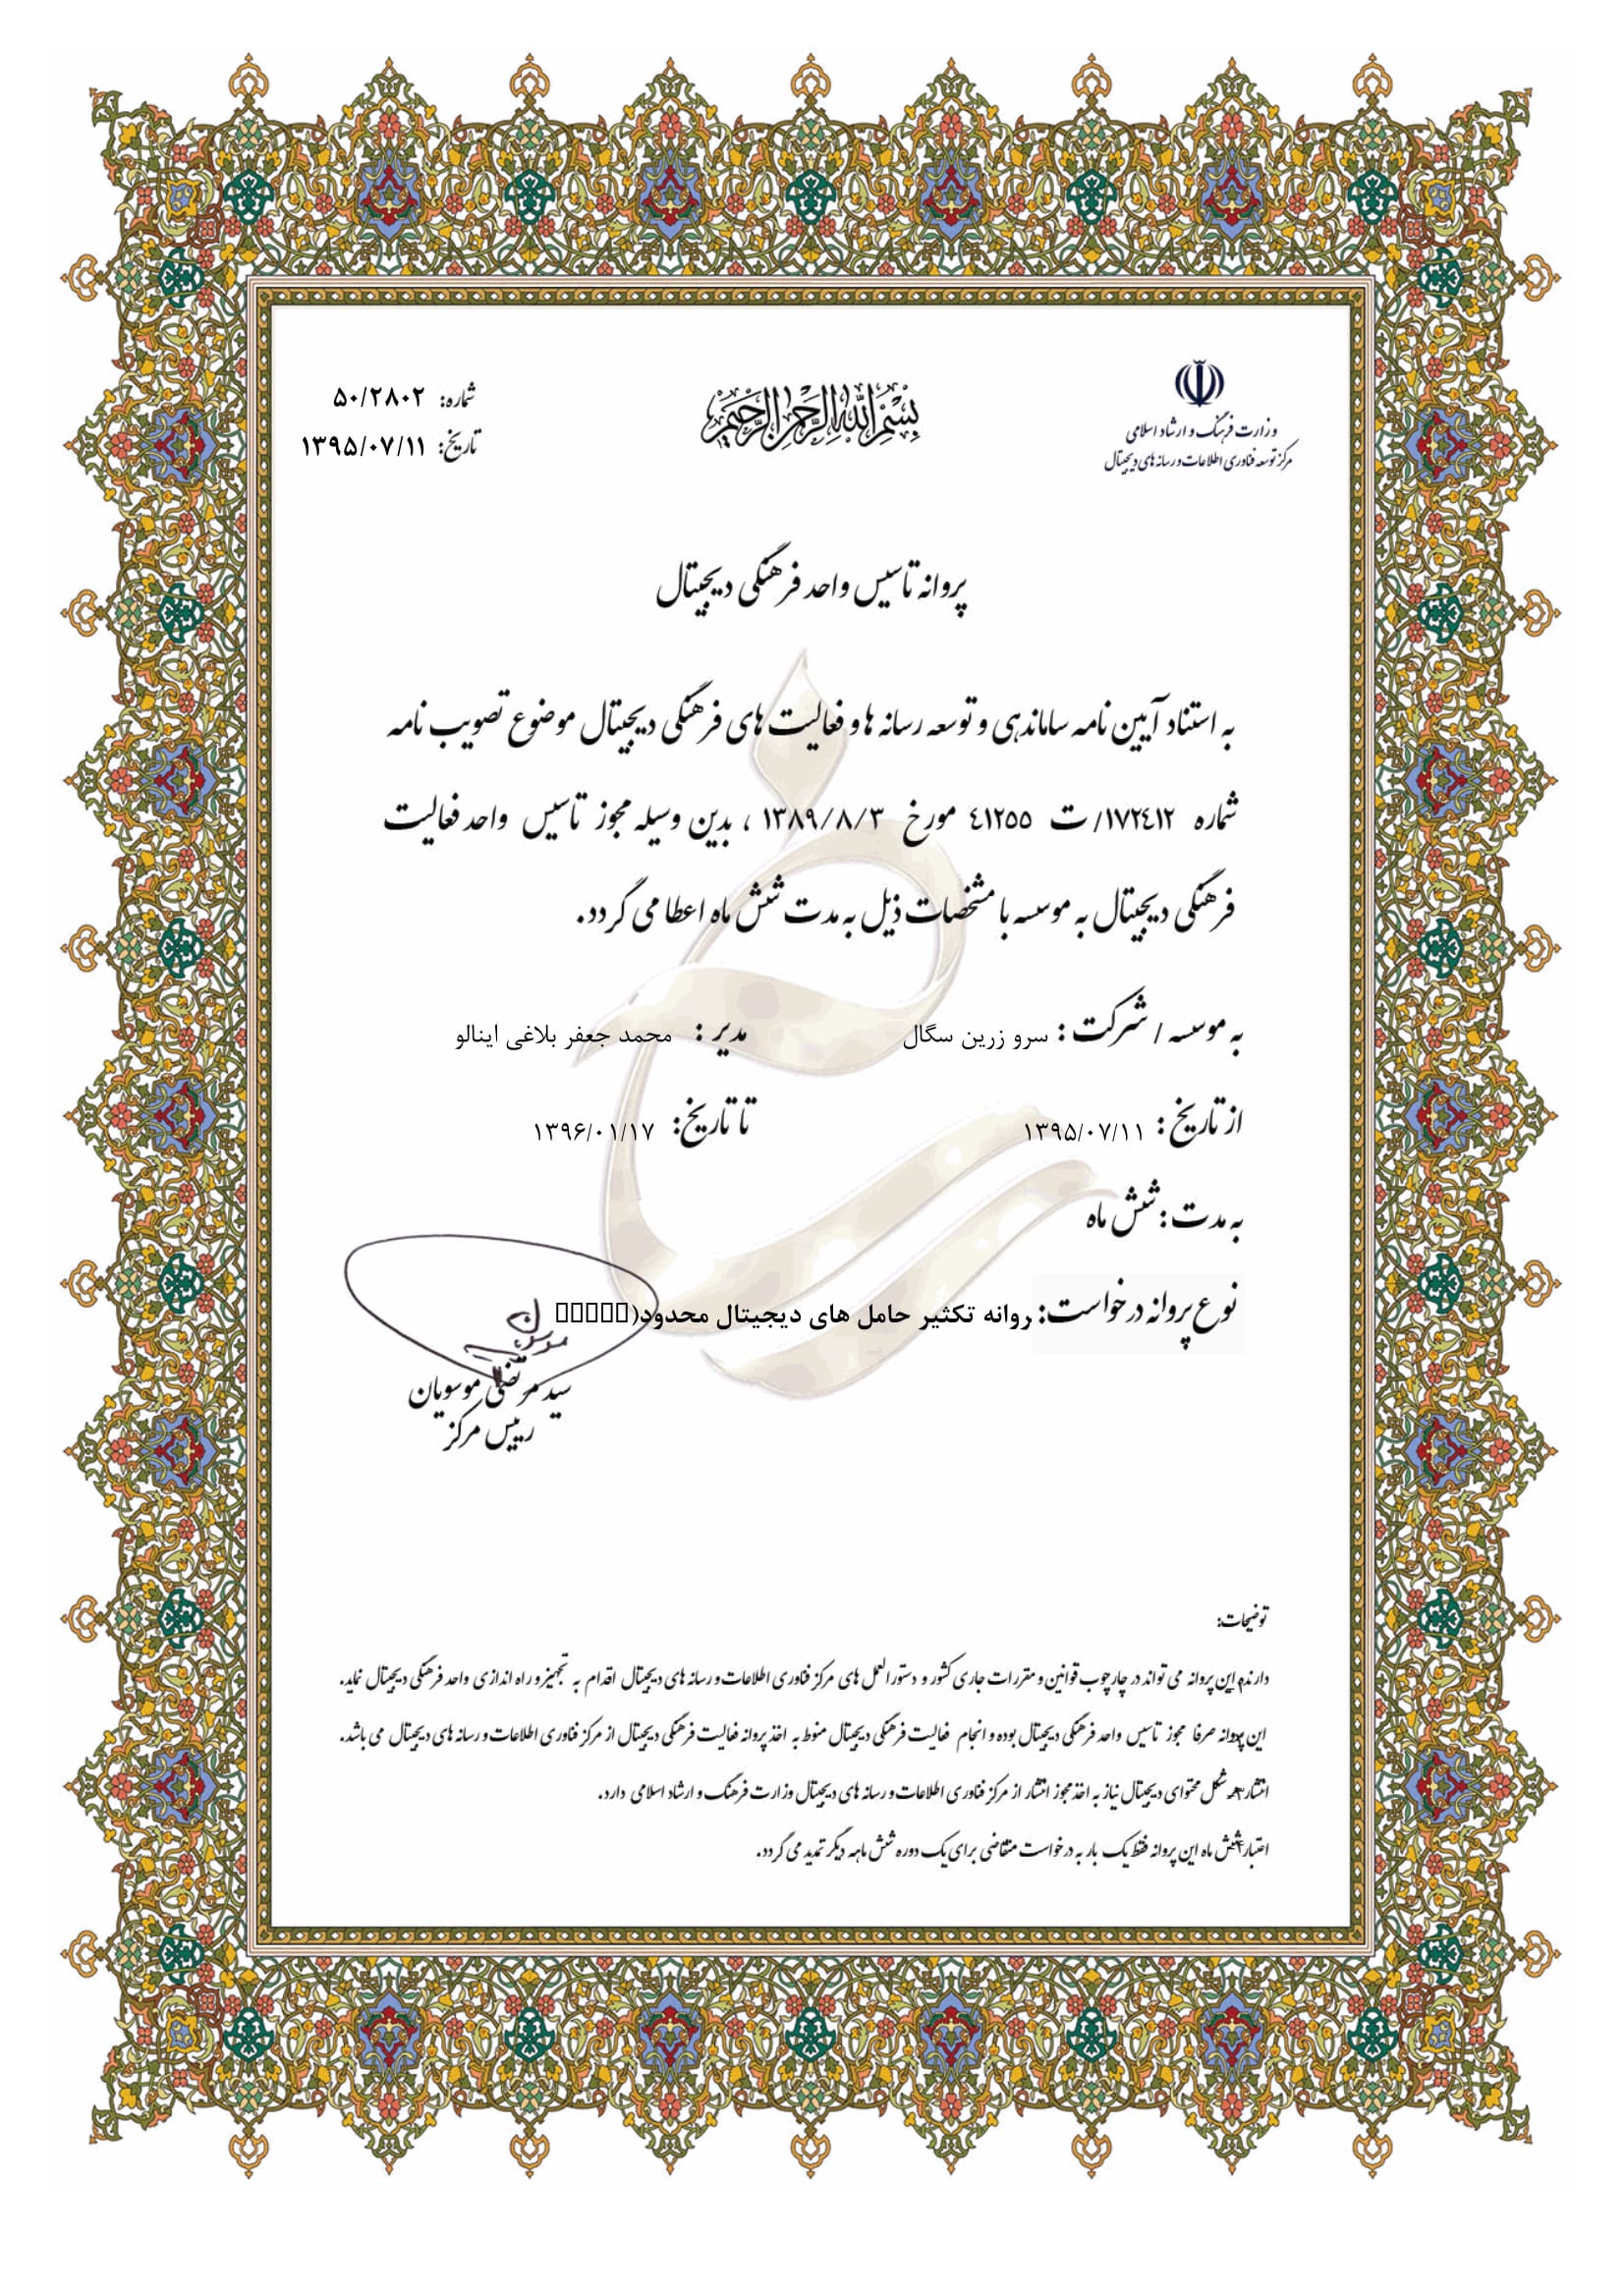 وزارت فرهنگ و ارشاد اسلامی
مرکز توسعه فناوری اطلاعات و رسانه های دیجیتال
بسم الله الرحمن الرحیم
شماره: ۵۰/۲۸۰۲
تاریخ: ۱۳۹۵/۰۷/۱۱
پروانه تاسیس واحد فرهنگی دیجیتال
به استناد آیین نامه ساماندهی و توسعه رسانه ها و فعالیت های فرهنگی دیجیتال موضوع تصویب نامه
شماره ۱۷۲٤۱۲/ ت ٤۱۲۵۵ مورخ ۱۳۸۹/۸/۳ ، بدین وسیله مجوز تاسیس واحد فعالیت
فرهنگی دیجیتال به موسسه با مشخصات ذیل به مدت شش ماه اعطا می گردد.
به موسسه / شرکت : سرو زرین سگال مدیر : محمد جعفر بلاغی اینالو
از تاریخ : ۱۳۹۵/۰۷/۱۱ تا تاریخ: ۱۳۹۶/۰۱/۱۷
به مدت : شش ماه
نوع پروانه درخواست: روانه تکثیر حامل های دیجیتال محدود(
سید مرتضی موسویان
رییس مرکز
توضیحات:
دارنده این پروانه می تواند در چارچوب قوانین و مقررات جاری کشور و دستورالعمل های مرکز فناوری اطلاعات و رسانه های دیجیتال اقدام به تجهیز و راه اندازی واحد فرهنگی دیجیتال نماید.
این پروانه صرفا مجوز تاسیس واحد فرهنگی دیجیتال بوده و انجام فعالیت فرهنگی دیجیتال منوط به اخذ پروانه فعالیت فرهنگی دیجیتال از مرکز فناوری اطلاعات و رسانه های دیجیتال می باشد.
انتشار هر شکل محتوای دیجیتال نیاز به اخذ مجوز انتشار از مرکز فناوری اطلاعات و رسانه های دیجیتال وزارت فرهنگ و ارشاد اسلامی دارد.
اعتبار شش ماه این پروانه فقط یک بار به درخواست متقاضی برای یک دوره شش ماهه دیگر تمدید می گردد.